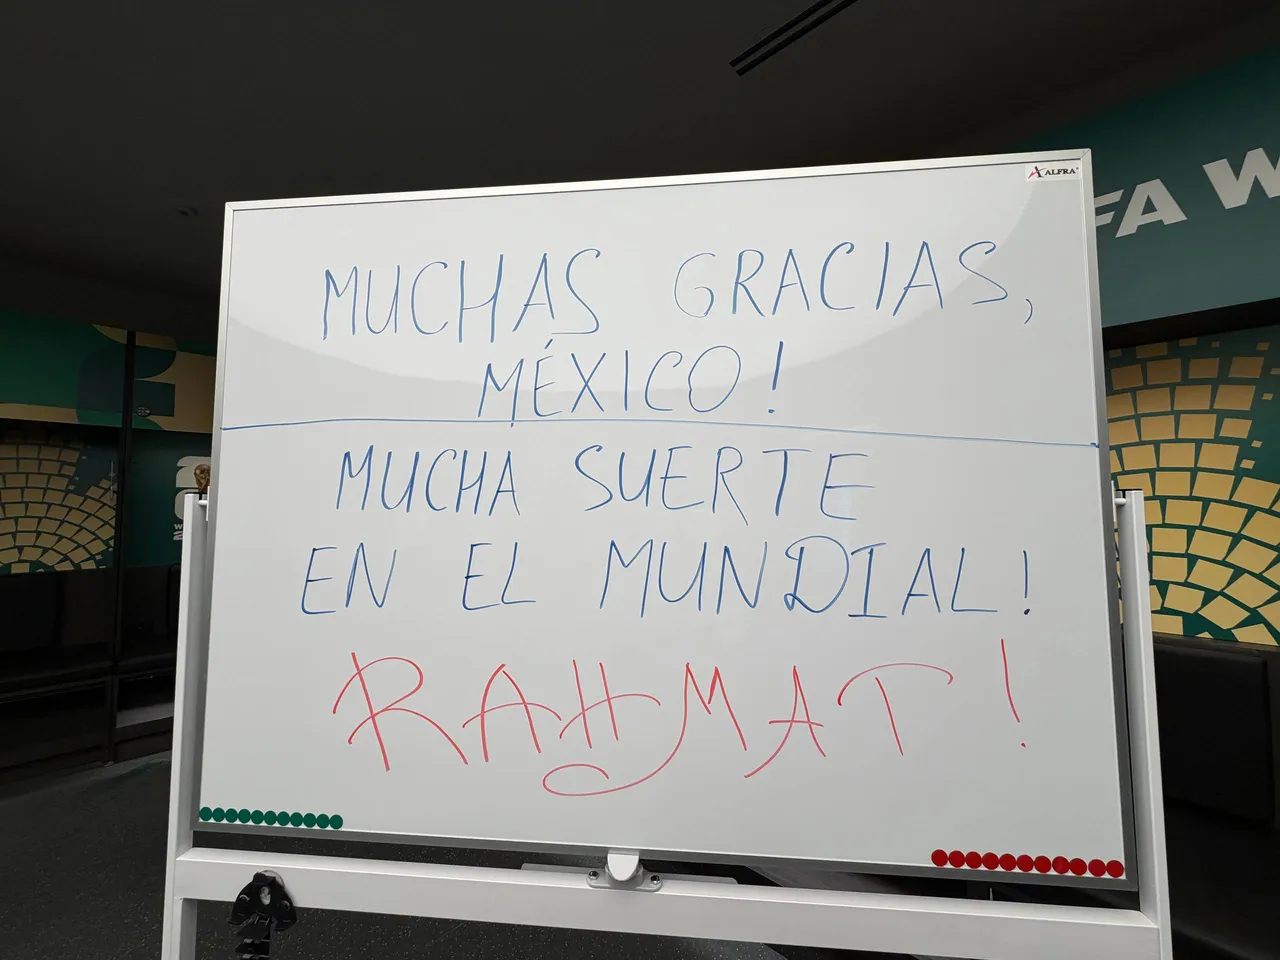 ALFRA
FA W
MUCHAS GRACIAS,
MÉXICO!
MUCHA SUERTE
EN EL MUNDIAL!
RAHMAT!